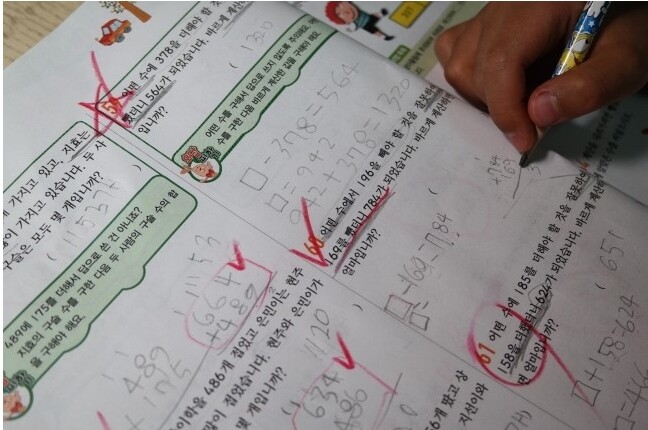 어떤 수에 378을 더해야 할 것을
뺐더니 564가 되었습니다. 바르게 계산
입니까?
1320
어떤 수를 구해서 답으로 쓰지 않도록 주의해요. 어떤
수를 구한 다음 바르게 계산한 값을 구해야 해요.
□-378=564
□=942
942+378=1320
60 어떤 수에서 196을 빼야 할 것을 잘못하여
169를 뺐더니 784가 되었습니다. 바르게 계산하면
얼마입니까?
□-169=784
□=
784
+169
3
61 어떤 수에 185를 더해야 할 것을 잘못하여
158을 더했더니 624가 되었습니다. 바르게 계산
면 얼마입니까?
651
□+158=624
□=466
가지고 있고, 지효는
많이 가지고 있습니다. 두 사
구슬은 모두 몇 개입니까?
1153
489에 175를 더해서 답으로 쓴 건 아니죠?
지효의 구슬 수를 구한 다음 두 사람의 구슬 수의 합
을 구해야 해요.
489
+175
1153
664
+489
종이학을 486개 접었고, 은민이는 현주
많이 접었습니다. 현주와 은민이가
몇 개입니까?
1120
634
486
6개 땄고 상
지선이와